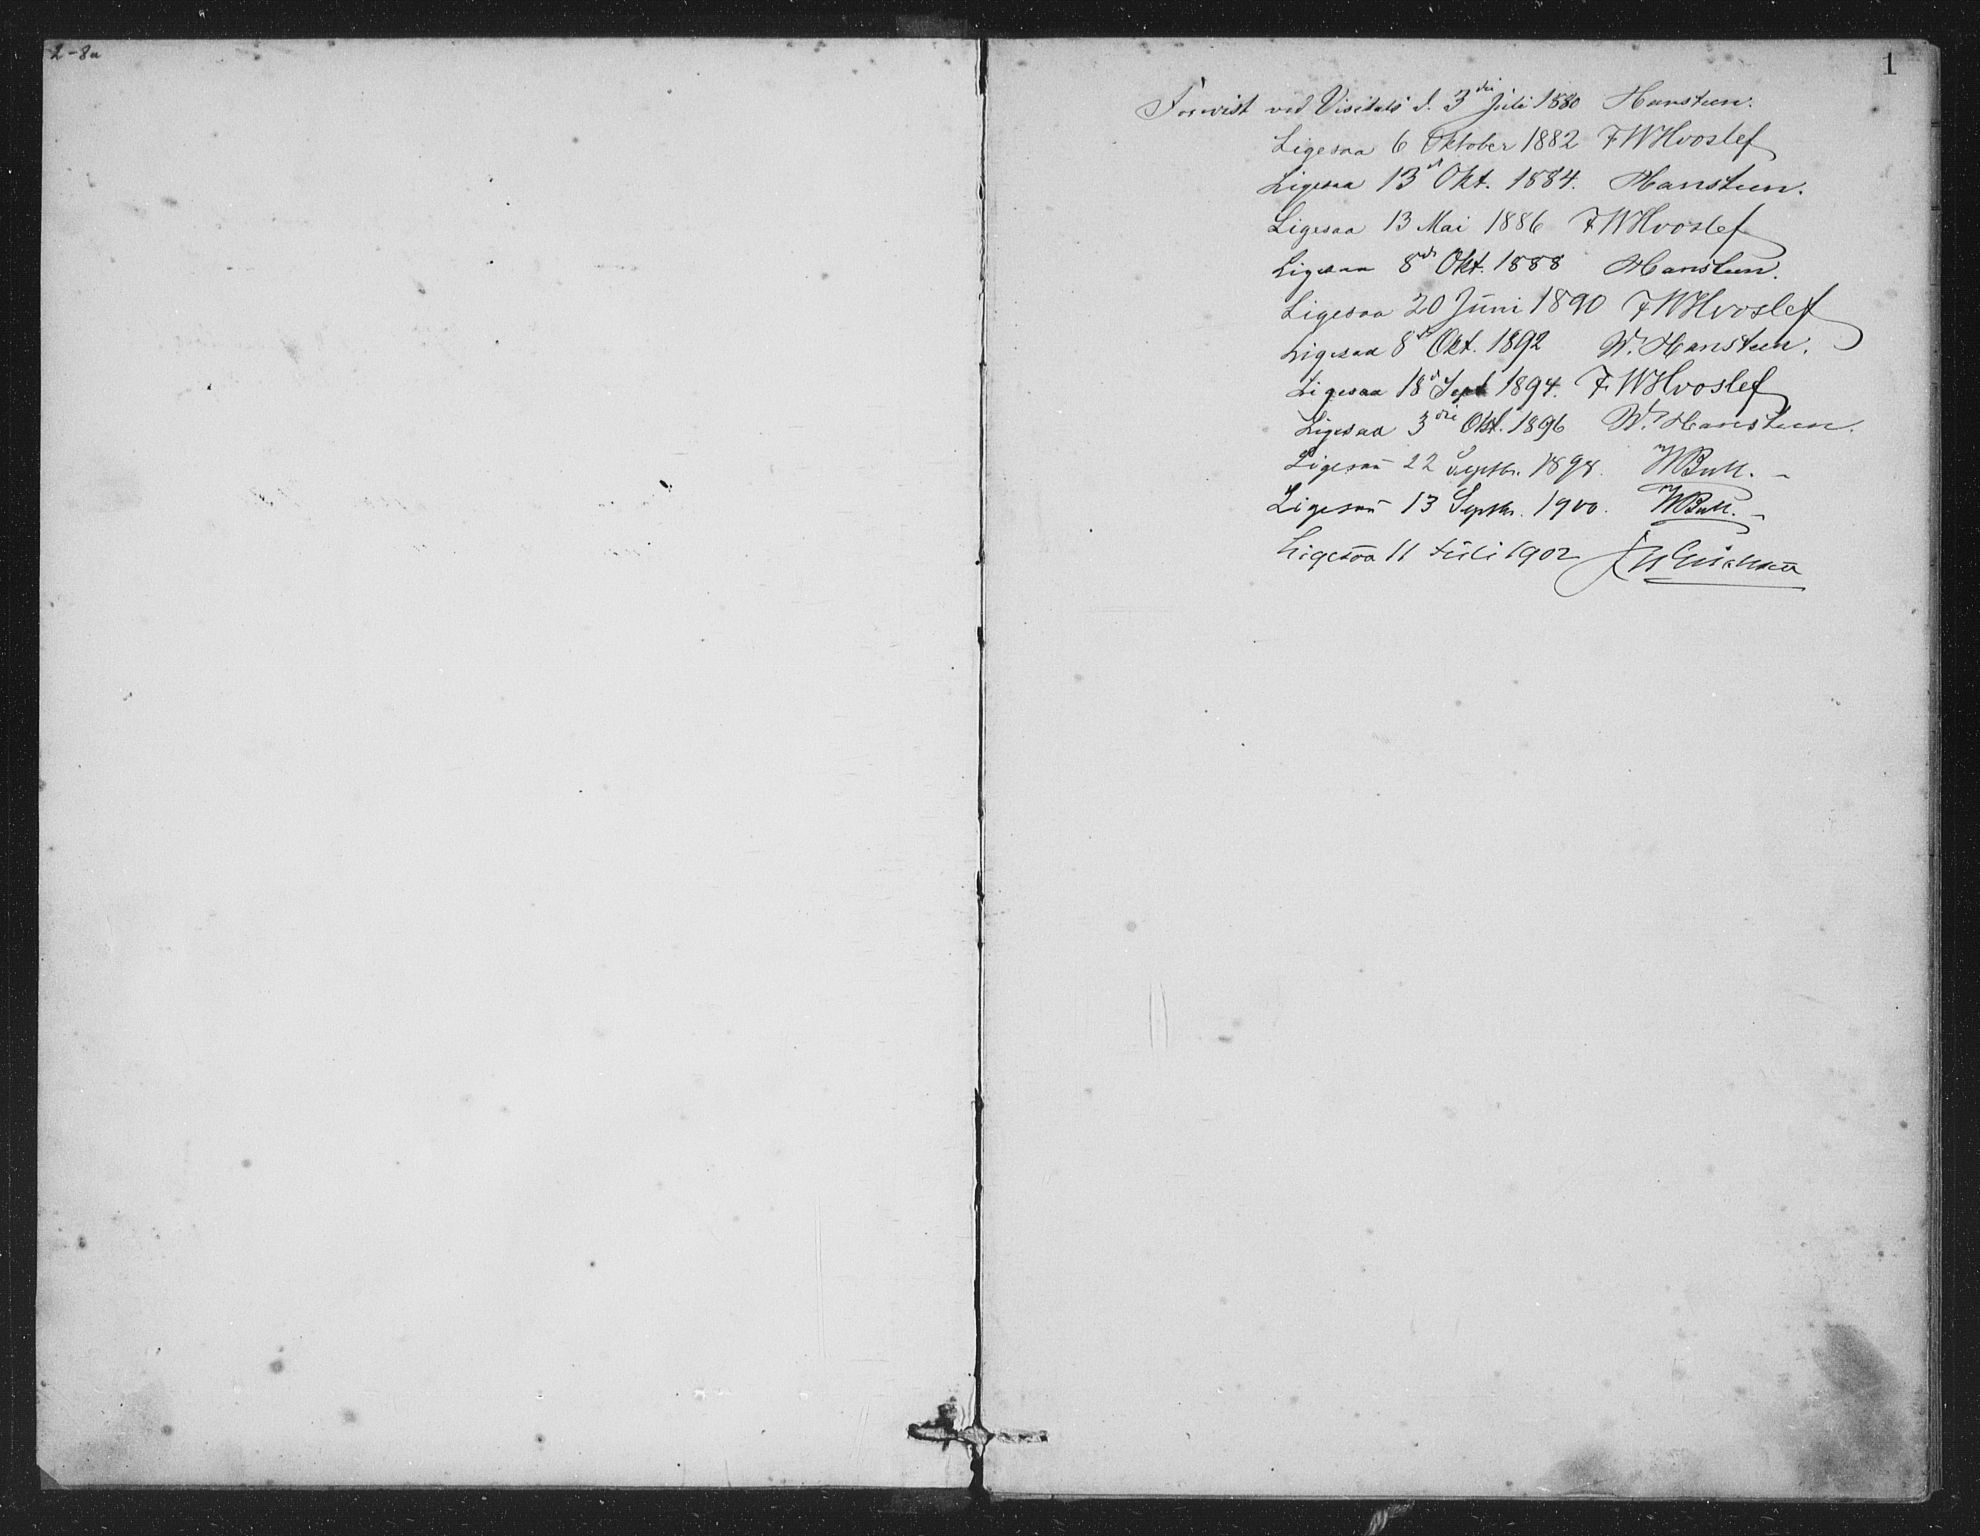 2-8a
1
Forevist ved Visitats d. 3die Juli 1880 Hansteen.
Ligesaa 6 Oktober 1882 F W Hvoslef
Ligesaa 13d Okt. 1884. Hansteen.
Ligesaa 13 Mai 1886 F W Hvoslef
Ligesaa 8de Okt. 1888 Hansteen.
Ligesaa 20 Juni 1890 F W Hvoslef
Ligesaa 8de Okt. 1892 W. Hansteen.
Ligesaa 18d Sept 1894. F W Hvoslef
Ligesaa 3die Okt. 1896 W. Hansteen.
Ligesaa 22 Septbr. 1898. W Bull. –
Ligesaa 13 Septbr. 1900. W Bull. –
Ligesaa 11 Juli 1902